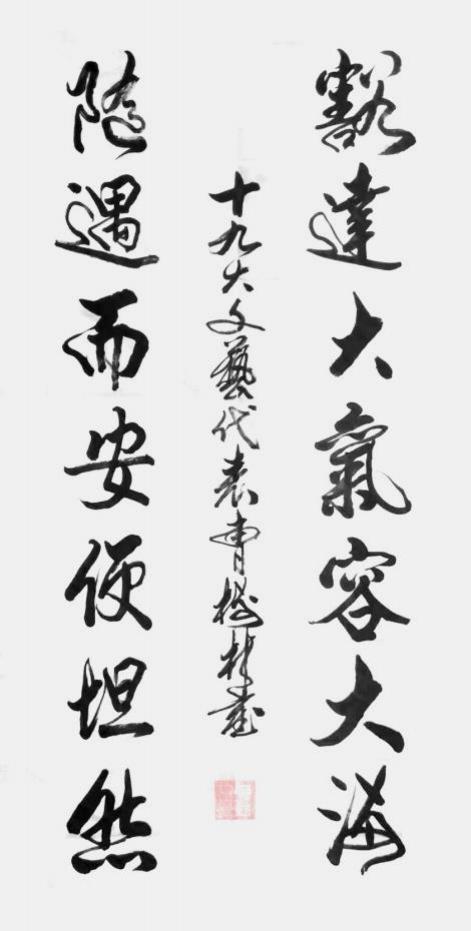 豁達大氣容大海
隨遇而安便坦然
十九大文藝代表曹樹林書